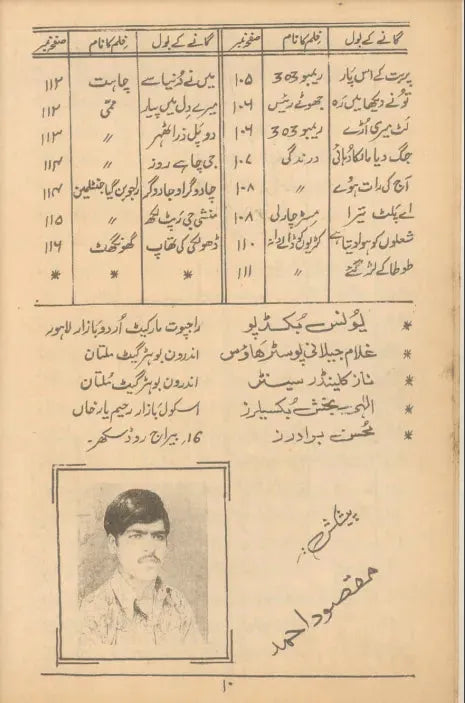 گانے کے بول فلم کا نام صفحہ نمبر گانے کے بول فلم کا نام صفحہ نمبر
پربت کے اس پار ریمبو 303 ۱۰۵ میں نے دُنیا سے چاہت ۱۱۲
تُو نے دیکھا میں رہ جھوٹے رئیس ۱۰۶ میرے دل میں پیار ممّی ۱۱۲
لٹ میری اُڑے ریمبو 303 ۱۰۶ دوپل ذرا ٹھہر 〃 ۱۱۳
جگ دیا مانگا دُہائی درندگی ۱۰۷ جی چاہے روز 〃 ۱۱۴
آج کی رات ہوے 〃 ۱۰۸ جادوگر او جادوگر راجو بن گیا جنٹلمین ۱۱۴
اے پلٹ تیرا مسٹر چارلی ۱۰۸ منشی جی رپٹ لکھ 〃 ۱۱۵
شعلوں کو ہوا دیتا ہے ۱۱۰ ڈھولکی کی تھاپ گھونگھٹ ۱۱۶
طوطا کے لڑ گئے 〃 ۱۱۱ * * *
* یونس بکڈپو راجپوت مارکیٹ اُردو بازار لاہور
* غلام جیلانی پوسٹر ھاؤس اندرون بوہڑ گیٹ ملتان
* ناز کلینڈر سینٹر اندرون بوہڑ گیٹ مُلتان
* الہی بخش بُکسیلرز اسکول بازار رحیم یار خاں
* محسن برادرز 16, بیراج روڈ سکھر۔
پیشکش :
مقصود احمد
۱۰